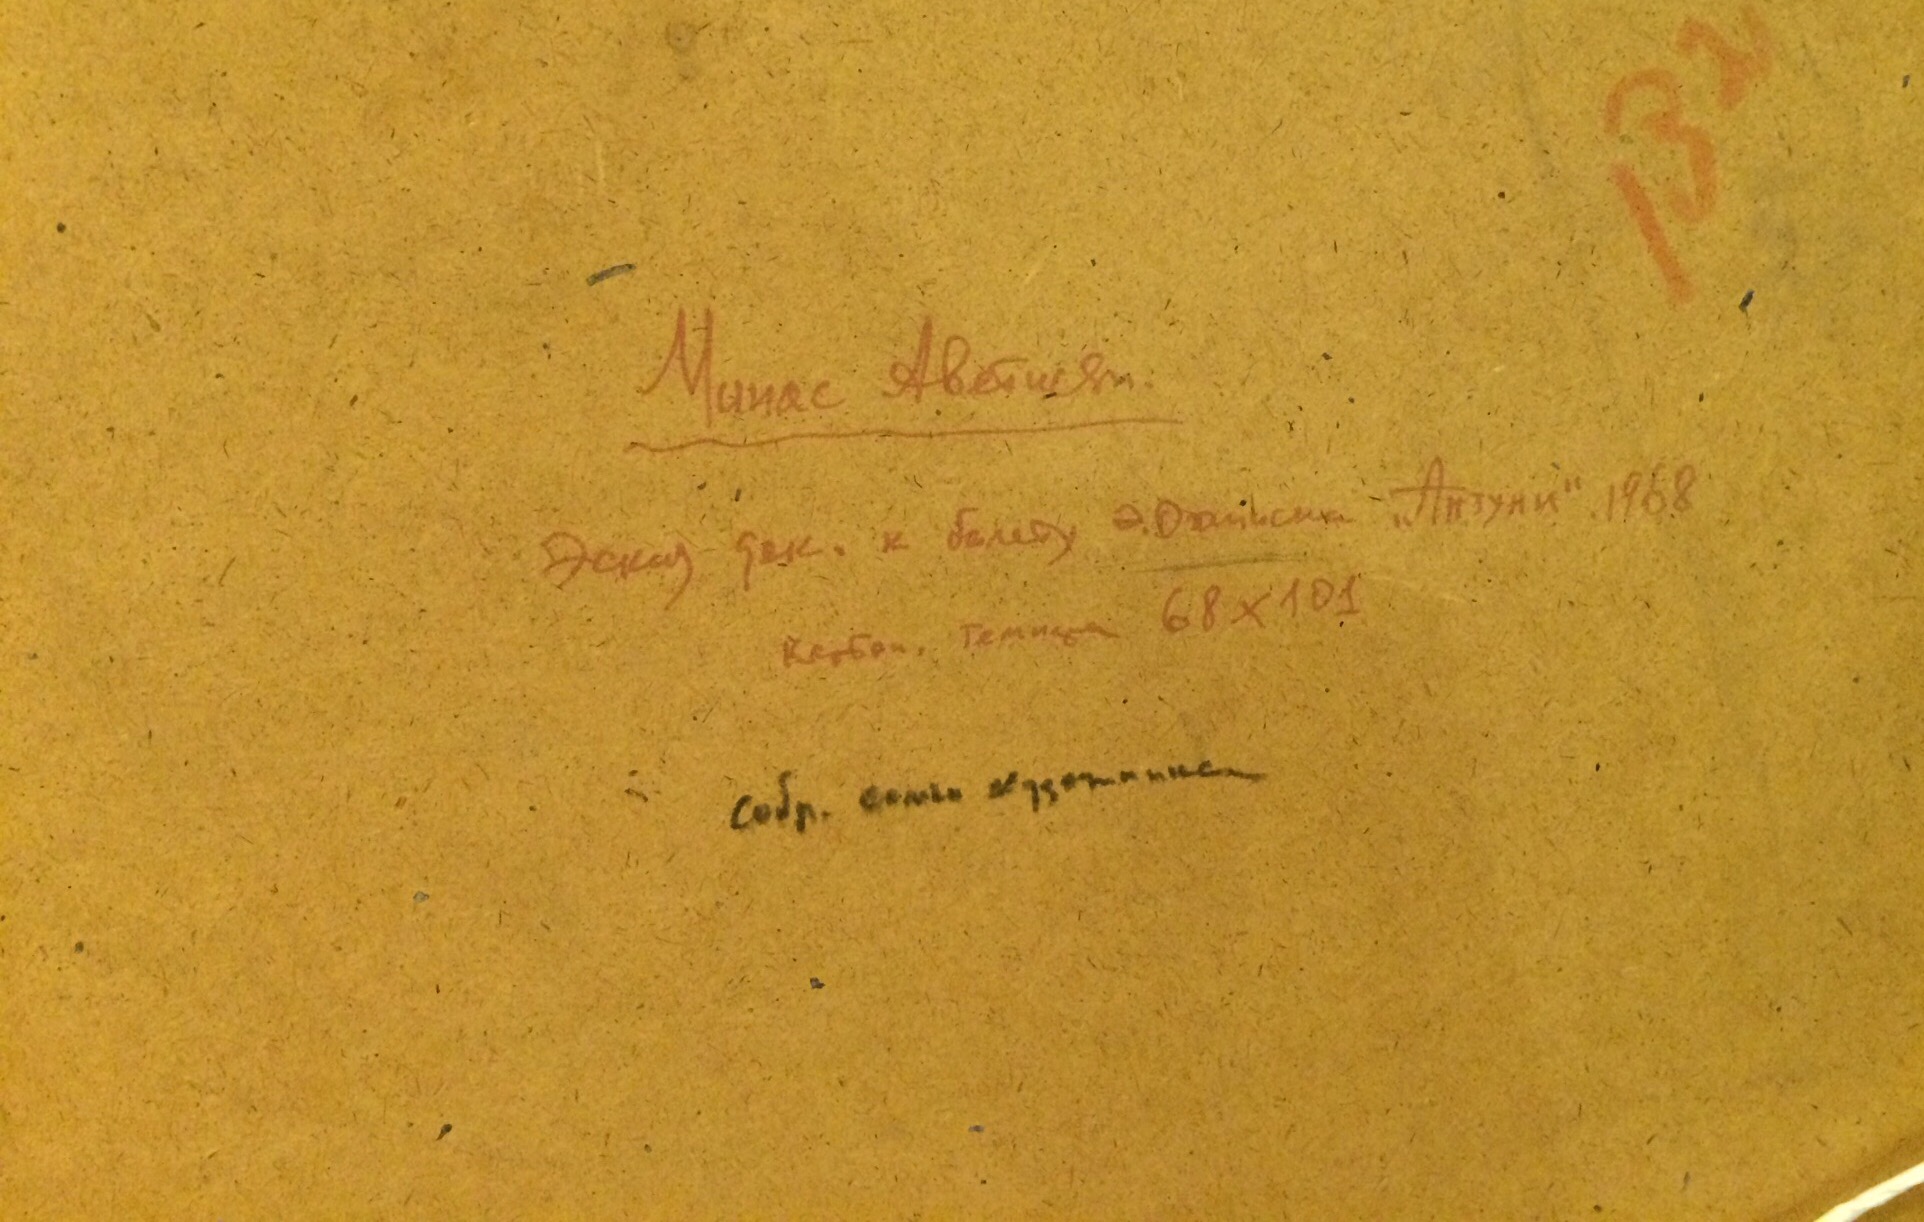 132
Минас Аветисян.
Эскиз дек. к балету Э.Оганесяна „Антуни" 1968
Картон. темпера 68х101
Собр. семьи художника